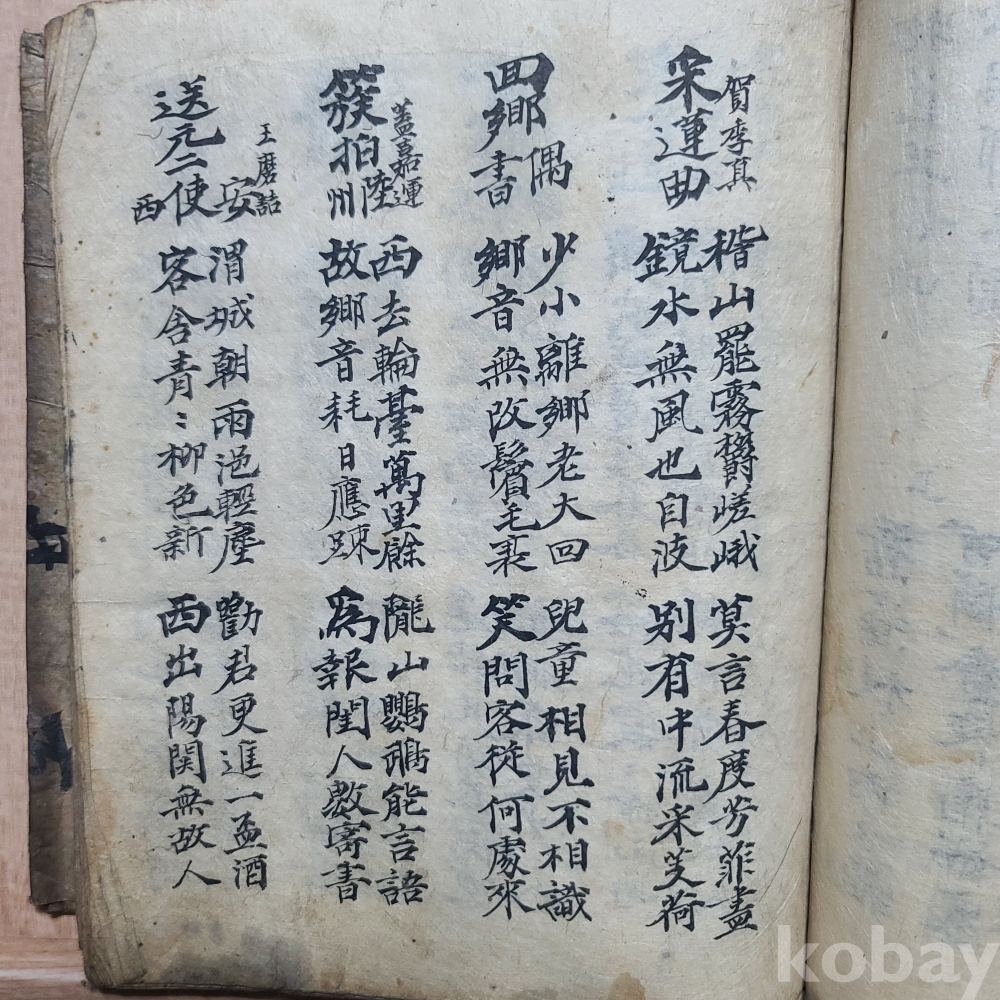 采蓮曲 賀季真
稽山罷霧欝嵯峨
鏡水無風也自波
莫言春度芳菲盡
別有中流采芰荷
回鄉偶書
少小離鄉老大回
鄉音無改鬢毛衰
兒童相見不相識
笑問客從何處來
簇拍陸州 蓋嘉運
西去輪臺萬里餘
故鄉音耗日應踈
隴山鸚鵡能言語
為報閨人數寄書
送元二使安西 王磨詰
渭城朝雨浥輕塵
客舍青〻柳色新
勸君更進一盃酒
西出陽関無故人
kobay